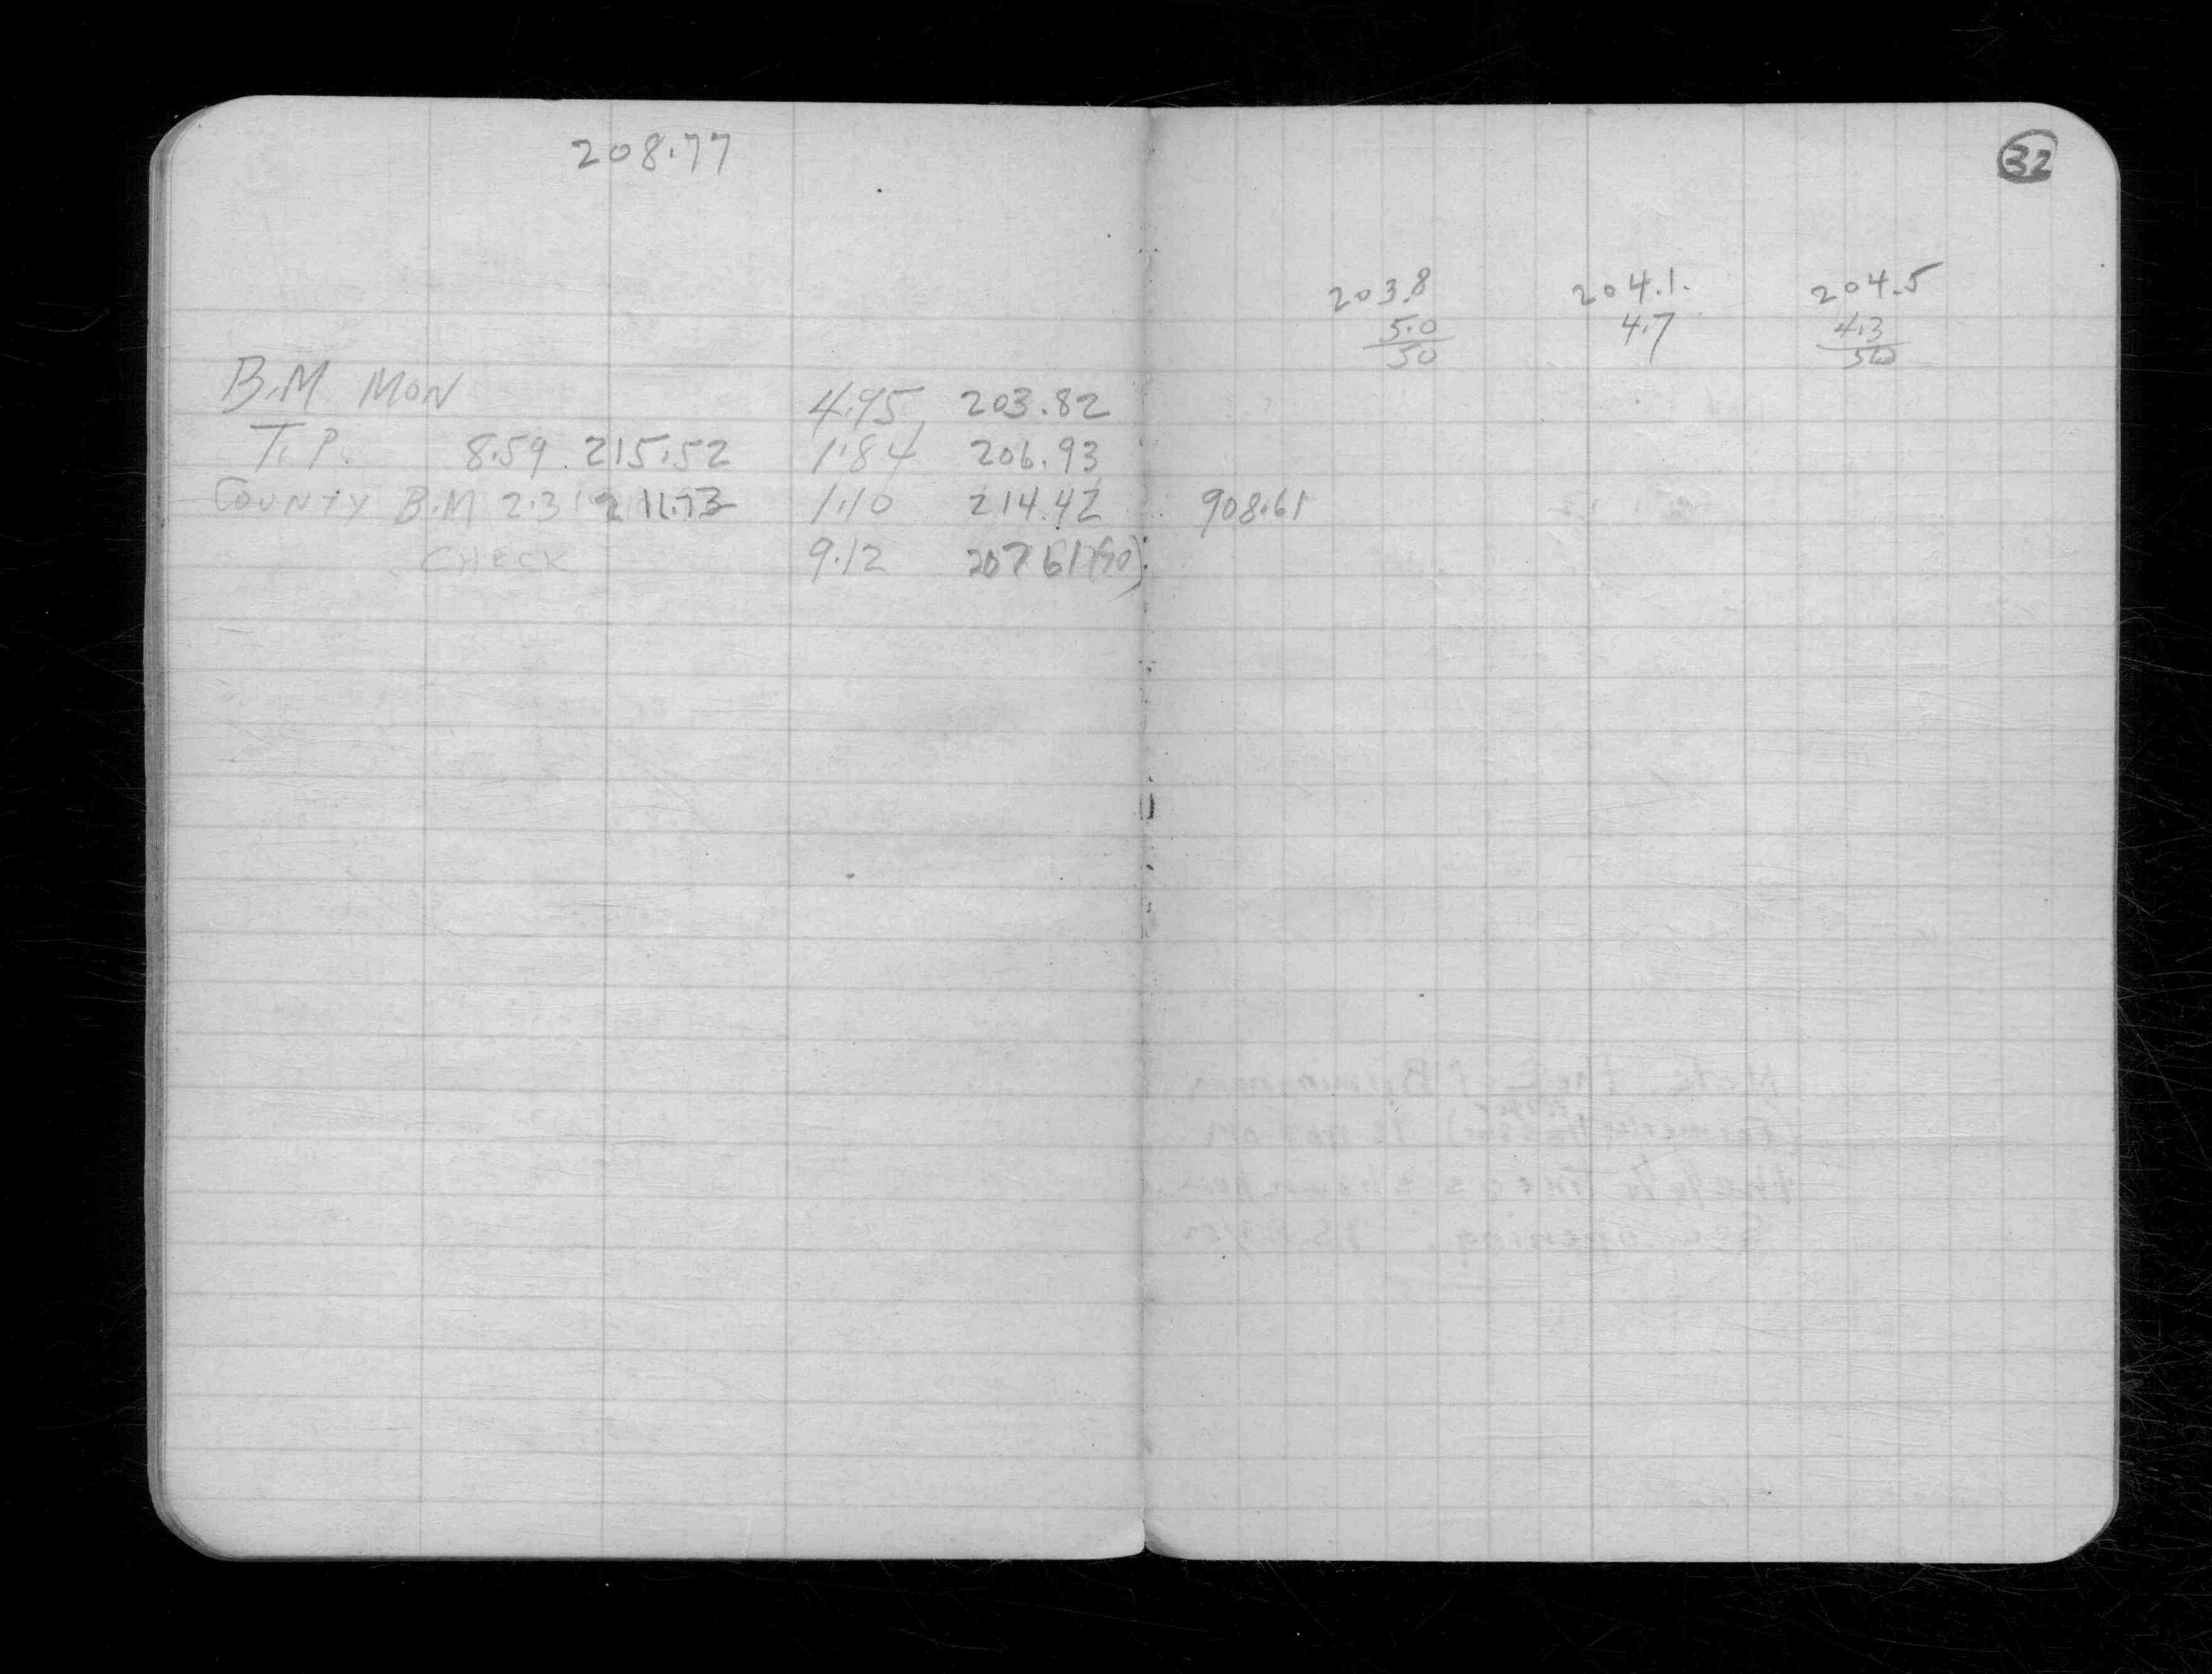 208.77
32
203.8 204.1. 204.5
5.0 4.7 4.3
50 50
B.M. MON 4.95 203.82
T.P. 8.59 215.52 1.84 206.93
COUNTY B.M 2.31 211.73 1.10 214.42 908.61
CHECK 9.12 207.61 (90)